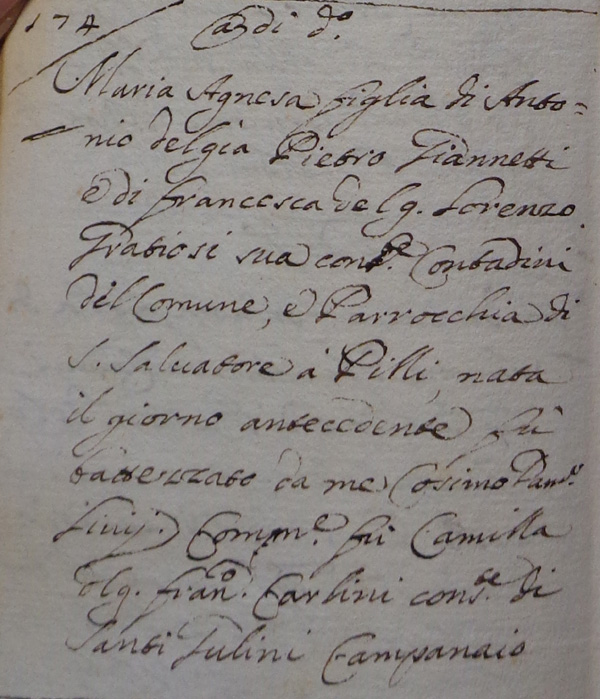 174 A di d.º
Maria Agnesa figlia di Anto=
nio del già Pietro Giannetti
e di Francesca del q. Lorenzo
Gratiosi sua cons.te Contadini
del Comune, e Parrocchia di
S. Salvatore à Pilli, nata
il giorno antecedente fù
battezzato da me Cosimo
Livij. Comm.e fù Camilla
del q. Fran.º Carlini cons.te di
Santi Tulini Campanaio